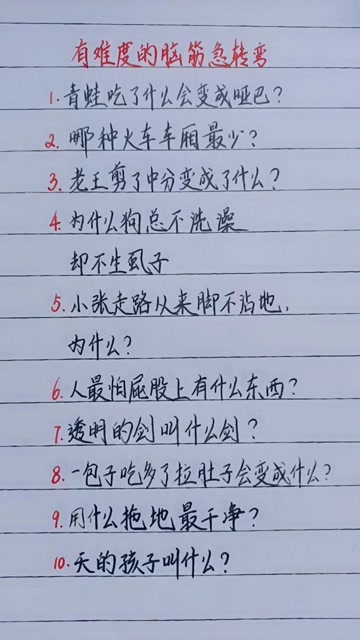 有难度的脑筋急转弯
1.青蛙吃了什么会变成哑巴?
2.哪种火车车厢最少?
3.老王剪了中分变成了什么?
4.为什么狗总不洗澡
却不生虱子
5.小张走路从来脚不沾地,
为什么?
6.人最怕屁股上有什么东西?
7.透明的剑叫什么剑?
8.一包子吃多了拉肚子会变成什么?
9.用什么拖地最干净?
10.天的孩子叫什么?